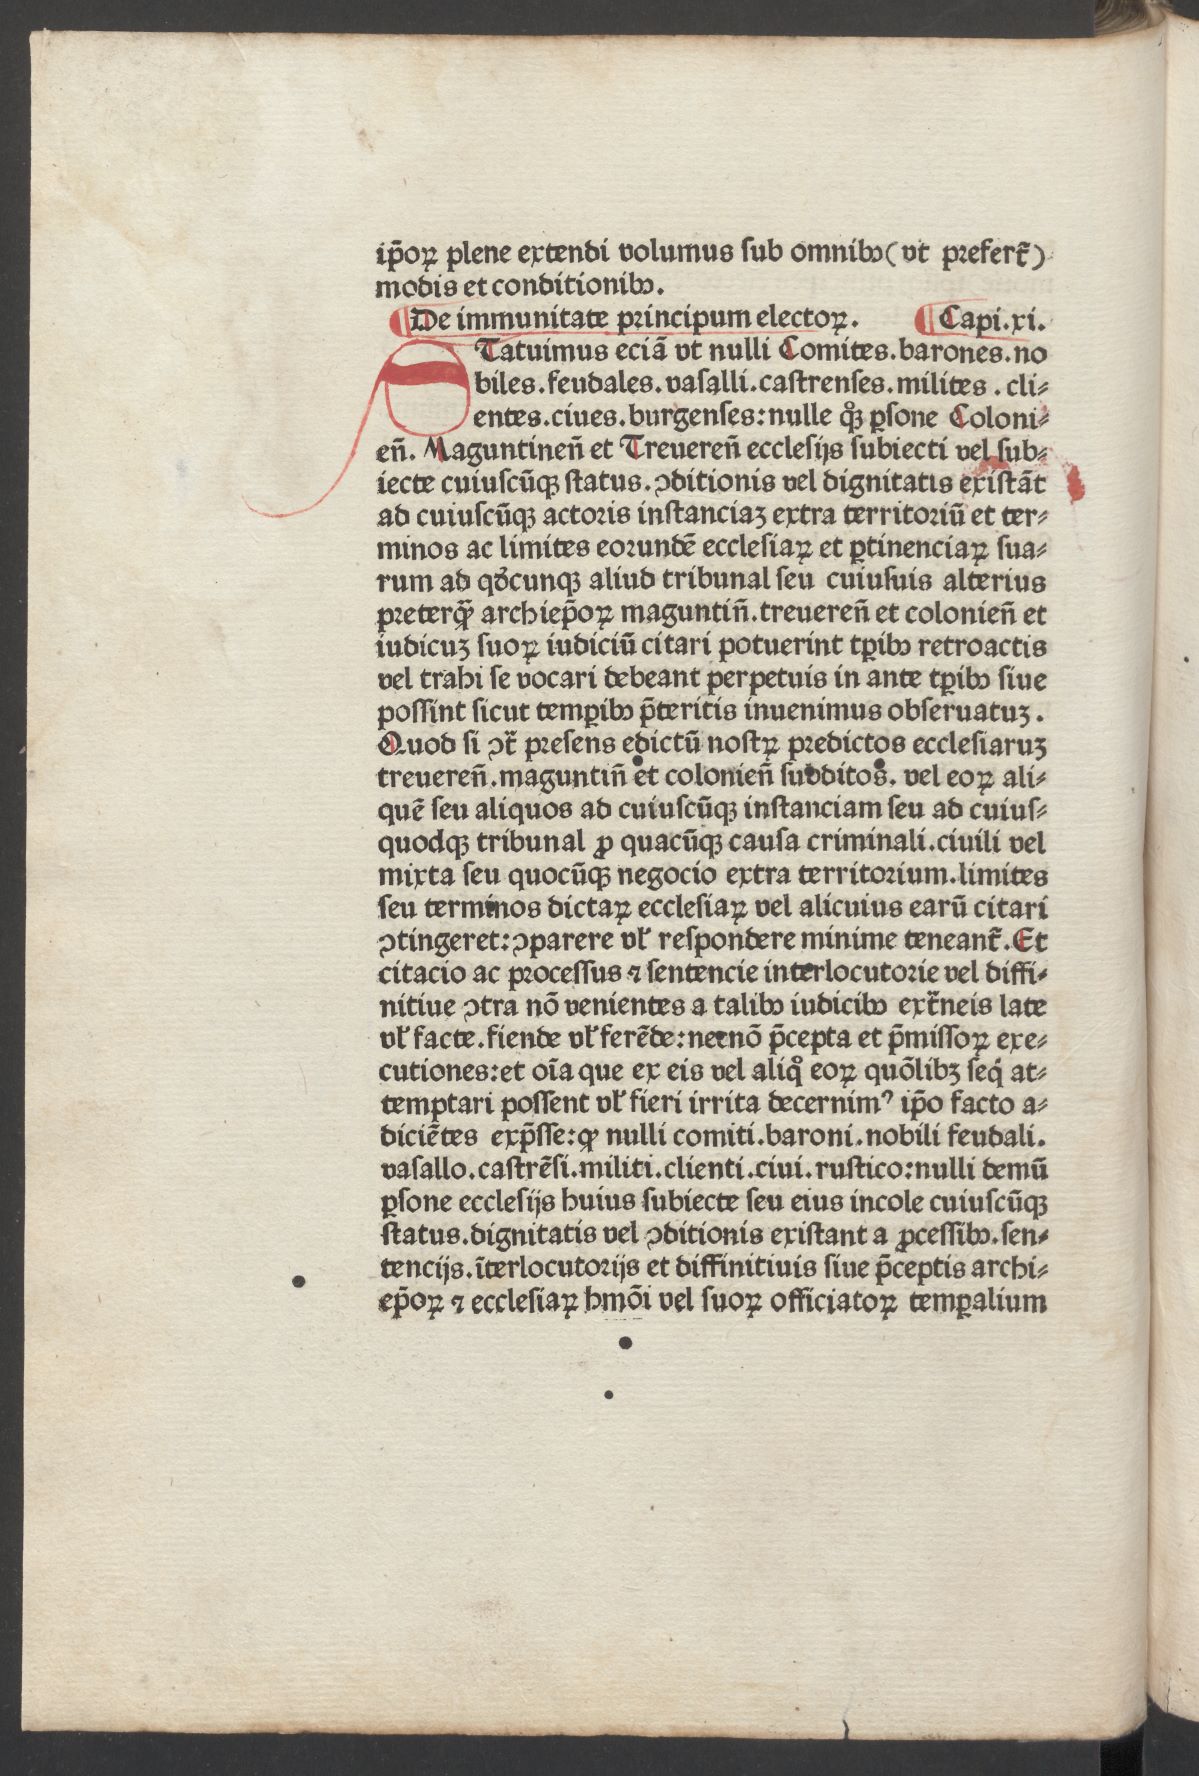 ip̄oꝝ plene extendi volumus sub omnibꝫ (vt prefert̃)
modis et conditionibꝫ.
¶ De immunitate principum electoꝝ. ¶ Capi.xi.
STatuimus eciā vt nulli Comites.barones.no
biles.feudales.vasalli.castrenses.milites.cli⸗
entes.ciues.burgenses:nulle qͦꝫ ꝑsone Coloni⸗
en̄. Maguntinen̄ et Treueren̄ ecclesijs subiecti vel sub⸗
iecte cuiuscūqꝫ status.ꝯditionis vel dignitatis existāt
ad cuiuscūqꝫ actoris instanciaꝫ extra territoriū et ter⸗
minos ac limites eorundē ecclesiaꝝ et ꝑtinenciaꝝ sua⸗
rum ad qd̓cunqꝫ aliud tribunal seu cuiusuis alterius
preterqꝫ̄ archiep̄oꝝ maguntin̄.treueren̄ et colonien̄ et
iudicuꝫ suoꝝ iudiciū citari potuerint tꝑibꝫ retroactis
vel trahi se vocari debeant perpetuis in ante tꝑibꝫ siue
possint sicut temꝑibꝫ p̄teritis inuenimus obseruatuꝫ.
Quod si ꝯt̃ presens edictū nostꝝ predictos ecclesiaruꝫ
treueren̄.maguntin̄ et colonien̄ subditos. vel eoꝝ ali⸗
quē seu aliquos ad cuiuscūqꝫ instanciam seu ad cuius⸗
quodqꝫ tribunal ꝓ quacūqꝫ causa criminali.ciuili vel
mixta seu quocūqꝫ negocio extra territorium.limites
seu terminos dictaꝝ ecclesiaꝝ vel alicuius earū citari
ꝯtingeret:ꝯparere vl̓ respondere minime teneant̃.Et
citacio ac processus ⁊ sentencie interlocutorie vel diffi⸗
nitiue ꝯtra nō venientes a talibꝫ iudicibꝫ ext̃neis late
vl̓ facte.fiende vl̓ ferēde:necnō p̄cepta et p̄missoꝝ exe⸗
cutiones:et oīa que ex eis vel aliqͦ eoꝝ quōlibꝫ seq̇ at⸗
temptari possent vl̓ fieri irrita decernimꝰ ip̄o facto a⸗
diciētes exp̄sse:ꝙ nulli comiti.baroni.nobili feudali.
vasallo.castrēsi.militi.clienti.ciui.rustico:nulli demū
ꝑsone ecclesijs huius subiecte seu eius incole cuiuscūqꝫ
status.dignitatis vel ꝯditionis existant a ꝓcessibꝫ.sen⸗
tencijs.īterlocutorijs et diffinitiuis siue p̄ceptis archi⸗
ep̄oꝝ ⁊ ecclesiaꝝ hmōi vel suoꝝ officiatoꝝ temꝑalium